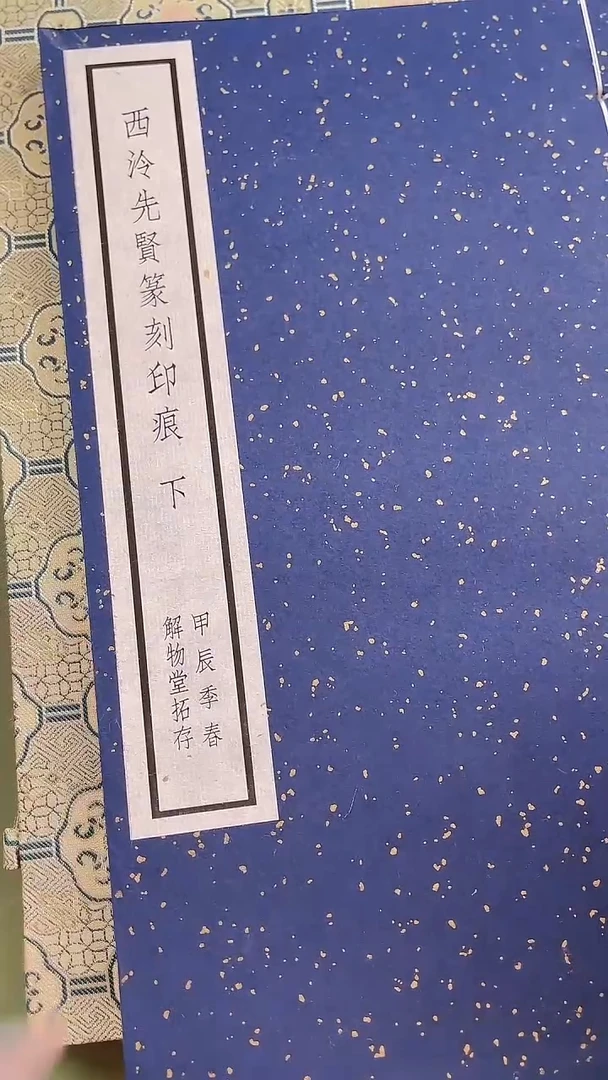 西泠先賢篆刻印痕 下
甲辰季春
解物堂拓存